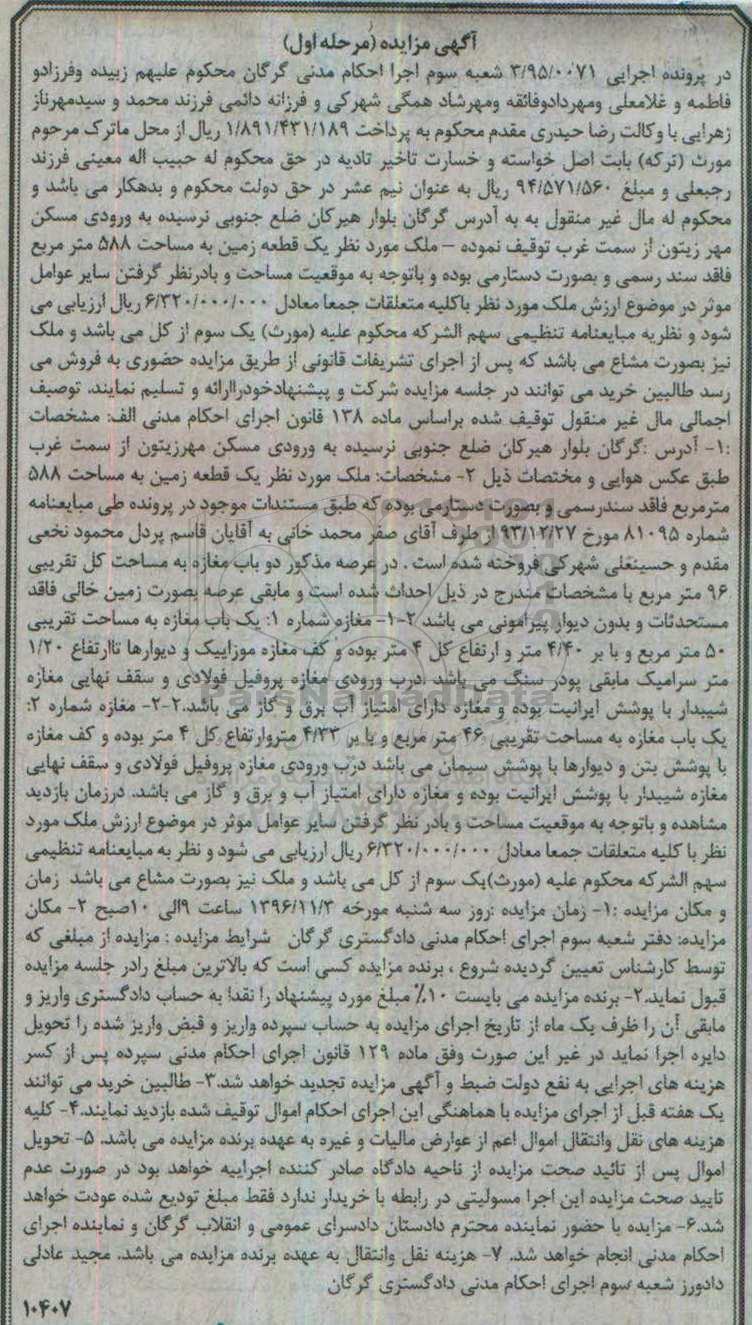 آگهی مزایده (مرحله اول)
در پرونده اجرایی ۳/۹۵/۰۰۷۱ شعبه سوم اجرا احکام مدنی گرگان محکوم علیهم زبیده وفرزادو
فاطمه و غلامعلی ومهردادوفائقه ومهرشاد همگی شهرکی و فرزانه دائمی فرزند محمد و سیدمهرناز
زهرایی با وکالت رضا حیدری مقدم محکوم به پرداخت ۱/۸۹۱/۴۳۱/۱۸۹ ریال از محل ماترک مرحوم
مورث (ترکه) بابت اصل خواسته و خسارت تاخیر تادیه در حق محکوم له حبیب اله معینی فرزند
رجبعلی و مبلغ ۹۴/۵۷۱/۵۶۰ ریال به عنوان نیم عشر در حق دولت محکوم و بدهکار می باشد و
محکوم له مال غیر منقول به به آدرس گرگان بلوار هیرکان ضلع جنوبی نرسیده به ورودی مسکن
مهر زیتون از سمت غرب توقیف نموده – ملک مورد نظر یک قطعه زمین به مساحت ۵۸۸ متر مربع
فاقد سند رسمی و بصورت دستارمی بوده و باتوجه به موقعیت مساحت و بادرنظر گرفتن سایر عوامل
موثر در موضوع ارزش ملک مورد نظر باکلیه متعلقات جمعا معادل ۶/۳۲۰/۰۰۰/۰۰۰ ریال ارزیابی می
شود و نظریه مبایعنامه تنظیمی سهم الشرکه محکوم علیه (مورث) یک سوم از کل می باشد و ملک
نیز بصورت مشاع می باشد که پس از اجرای تشریفات قانونی از طریق مزایده حضوری به فروش می
رسد طالبین خرید می توانند در جلسه مزایده شرکت و پیشنهادخودراارائه و تسلیم نمایند. توصیف
اجمالی مال غیر منقول توقیف شده براساس ماده ۱۳۸ قانون اجرای احکام مدنی الف: مشخصات
:۱- آدرس :گرگان بلوار هیرکان ضلع جنوبی نرسیده به ورودی مسکن مهرزیتون از سمت غرب
طبق عکس هوایی و مختصات ذیل ۲- مشخصات: ملک مورد نظر یک قطعه زمین به مساحت ۵۸۸
مترمربع فاقد سندرسمی و بصورت دستارمی بوده که طبق مستندات موجود در پرونده طی مبایعنامه
شماره ۸۱۰۹۵ مورخ ۹۳/۱۲/۲۷ از طرف آقای صفر محمد خانی به آقایان قاسم پردل محمود نخعی
مقدم و حسینعلی شهرکی فروخته شده است . در عرصه مذکور دو باب مغازه به مساحت کل تقریبی
۹۶ متر مربع با مشخصات مندرج در ذیل احداث شده است و مابقی عرصه بصورت زمین خالی فاقد
مستحدثات و بدون دیوار پیرامونی می باشد ۲-۱- مغازه شماره ۱: یک باب مغازه به مساحت تقریبی
۵۰ متر مربع و با بر ۴/۴۰ متر و ارتفاع کل ۴ متر بوده و کف مغازه موزاییک و دیوارها تاارتفاع ۱/۲۰
متر سرامیک مابقی پودر سنگ می باشد .درب ورودی مغازه پروفیل فولادی و سقف نهایی مغازه
شیبدار با پوشش ایرانیت بوده و مغازه دارای امتیاز آب برق و گاز می باشد.۲-۲- مغازه شماره ۲:
یک باب مغازه به مساحت تقریبی ۴۶ متر مربع و با بر ۴/۳۳ متروارتفاع کل ۴ متر بوده و کف مغازه
با پوشش بتن و دیوارها با پوشش سیمان می باشد درب ورودی مغازه پروفیل فولادی و سقف نهایی
مغازه شیبدار با پوشش ایرانیت بوده و مغازه دارای امتیاز آب و برق و گاز می باشد. درزمان بازدید
مشاهده و باتوجه به موقعیت مساحت و بادر نظر گرفتن سایر عوامل موثر در موضوع ارزش ملک مورد
نظر با کلیه متعلقات جمعا معادل ۶/۳۲۰/۰۰۰/۰۰۰ ریال ارزیابی می شود و نظر به مبایعنامه تنظیمی
سهم الشرکه محکوم علیه (مورث)یک سوم از کل می باشد و ملک نیز بصورت مشاع می باشد زمان
و مکان مزایده :۱- زمان مزایده :روز سه شنبه مورخه ۱۳۹۶/۱۱/۳ ساعت ۹الی ۱۰صبح ۲- مکان
مزایده: دفتر شعبه سوم اجرای احکام مدنی دادگستری گرگان شرایط مزایده : مزایده از مبلغی که
توسط کارشناس تعیین گردیده شروع ، برنده مزایده کسی است که بالاترین مبلغ رادر جلسه مزایده
قبول نماید.۲- برنده مزایده می بایست ۱۰٪ مبلغ مورد پیشنهاد را نقدا به حساب دادگستری واریز و
مابقی آن را ظرف یک ماه از تاریخ اجرای مزایده به حساب سپرده واریز و قبض واریز شده را تحویل
دایره اجرا نماید در غیر این صورت وفق ماده ۱۲۹ قانون اجرای احکام مدنی سپرده پس از کسر
هزینه های اجرایی به نفع دولت ضبط و آگهی مزایده تجدید خواهد شد.۳- طالبین خرید می توانند
یک هفته قبل از اجرای مزایده با هماهنگی این اجرای احکام اموال توقیف شده بازدید نمایند.۴- کلیه
هزینه های نقل وانتقال اموال اعم از عوارض مالیات و غیره به عهده برنده مزایده می باشد. ۵- تحویل
اموال پس از تائید صحت مزایده از ناحیه دادگاه صادر کننده اجراییه خواهد بود در صورت عدم
تایید صحت مزایده این اجرا مسولیتی در رابطه با خریدار ندارد فقط مبلغ تودیع شده عودت خواهد
شد.۶- مزایده با حضور نماینده محترم دادستان دادسرای عمومی و انقلاب گرگان و نماینده اجرای
احکام مدنی انجام خواهد شد. ۷- هزینه نقل وانتقال به عهده برنده مزایده می باشد. مجید عادلی
دادورز شعبه سوم اجرای احکام مدنی دادگستری گرگان
۱۰۴۰۷
ParsNamadData